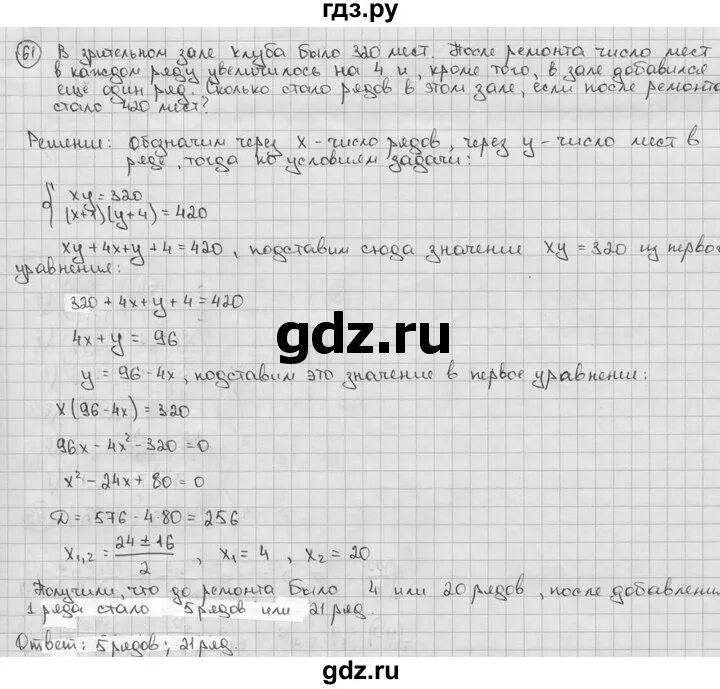 гдз.ру
61 В зрительном зале клуба было 320 мест. После ремонта число мест
в каждом ряду увеличилось на 4 и, кроме того, в зале добавился
ещё один ряд. Сколько стало рядов в этом зале, если после ремонта
стало 420 мест?
Решение: Обозначим через x - число рядов, через y - число мест в
ряде, тогда по условиям задачи:
{ xy = 320
(x+1)(y+4) = 420
xy + 4x + y + 4 = 420, подставим сюда значение xy = 320 из первого
уравнения:
320 + 4x + y + 4 = 420
4x + y = 96
y = 96 - 4x, подставим это значение в первое уравнение:
x(96 - 4x) = 320
96x - 4x² - 320 = 0
x² - 24x + 80 = 0
D = 576 - 4·80 = 256
x₁,₂ = (24 ± 16)/2, x₁ = 4, x₂ = 20
Получили, что до ремонта было 4 или 20 рядов, после добавлени
1 ряда стало 5 рядов или 21 ряд.
Ответ: 5 рядов; 21 ряд.
gdz.ru
gdz.ru